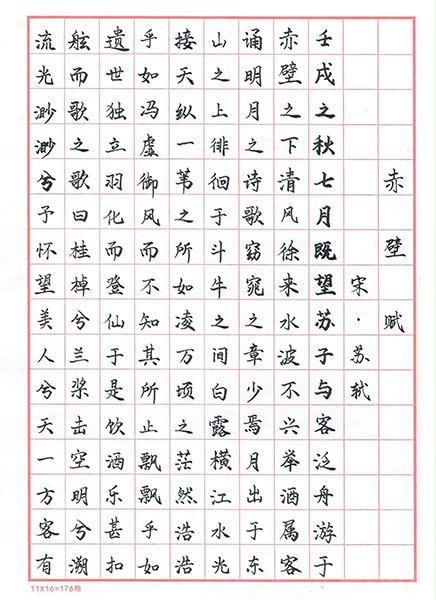 赤壁赋
宋·苏轼
壬戌之秋七月既望苏子与客泛舟游于
赤壁之下清风徐来水波不兴举酒属客
诵明月之诗歌窈窕之章少焉月出于东
山之上徘徊于斗牛之间白露横江水光
接天纵一苇之所如凌万顷之茫然浩浩
乎如冯虚御风而不知其所止飘飘乎如
遗世独立羽化而登仙于是饮酒乐甚扣
舷而歌之歌曰桂棹兮兰桨击空明兮溯
流光渺渺兮予怀望美人兮天一方客有
11X16=176格